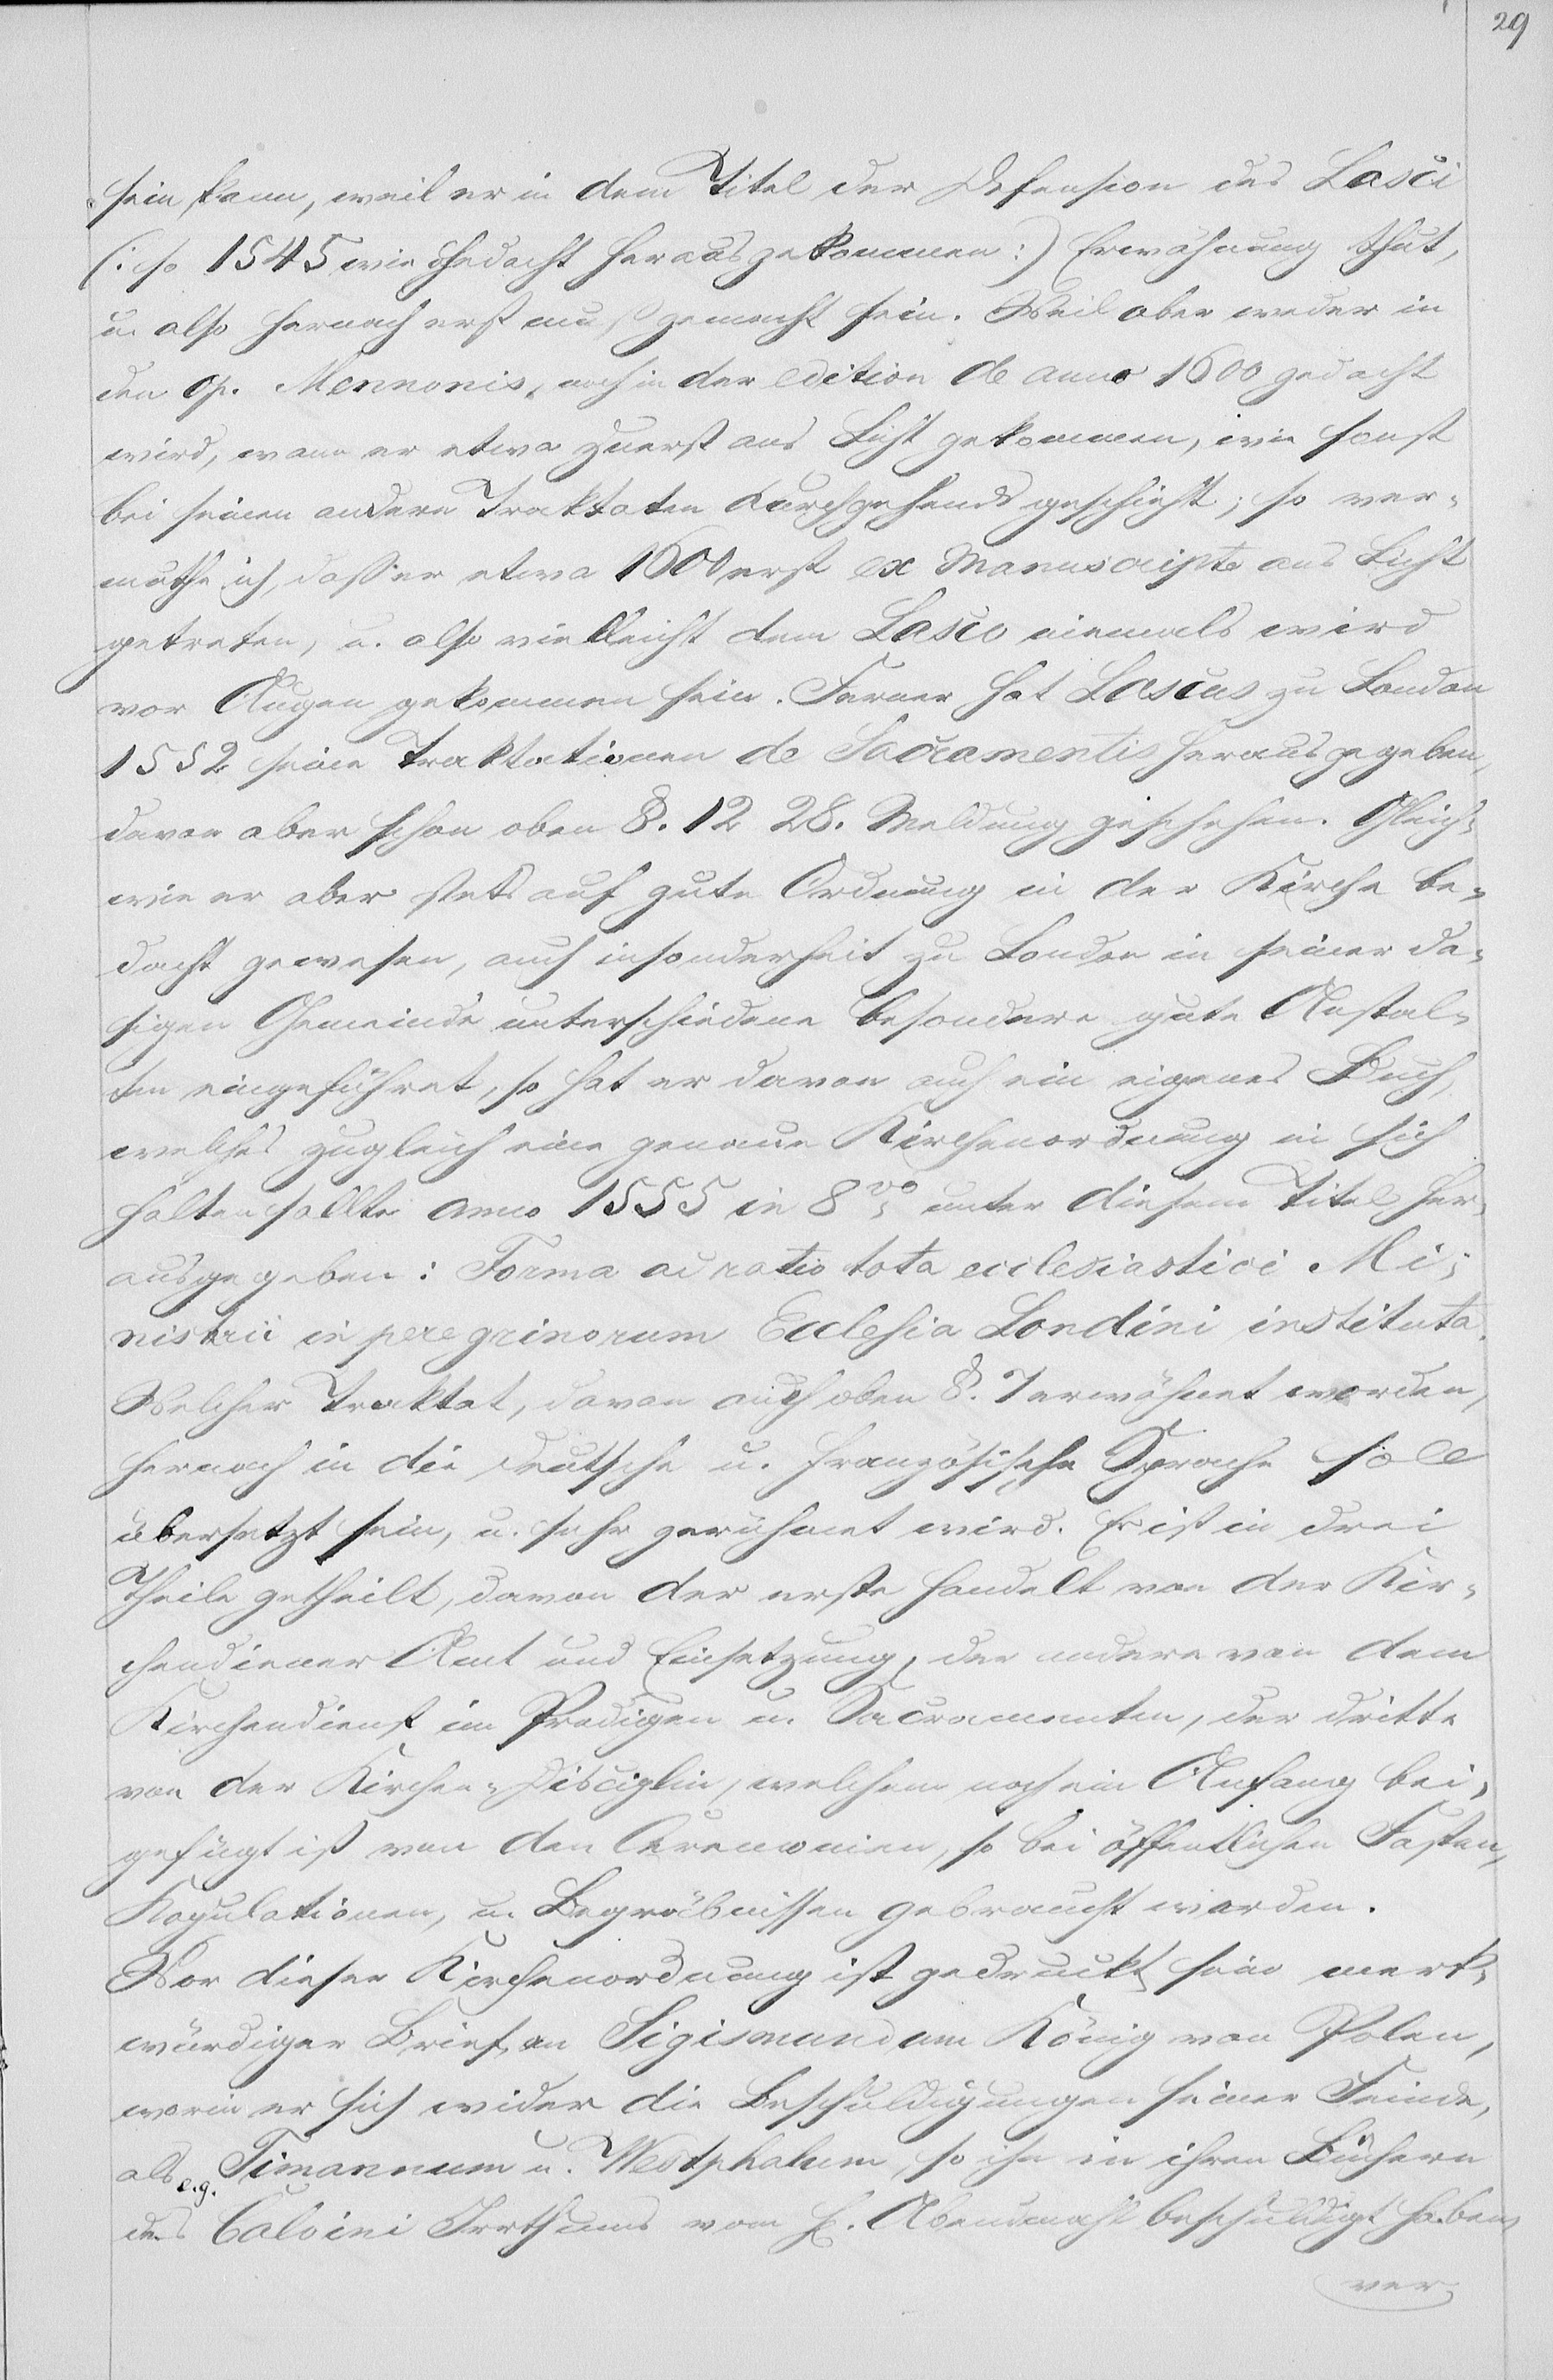 29
sein kann, weil er in dem Titel der Defension des Lasci
(: so 1545 wie gedacht herausgekommen :) Erwähnung thut,
u. also hernach erst muß gemacht sein. Weil aber weder in
den Op. Mennonis, noch in der edition de anno 1600 gedacht
wird, wann er etwa zuerst ans Licht gekommen, wie sonst
bei seinen andern Traktaten durchgehends geschieht; so ver-
muthe ich, daß er etwa 1600 erst ex Manuscripto ans Licht
getreten, u. also vielleicht dem Lasco niemals wird
vor Augen gekommen sein. Ferner hat Lascus zu London
1552 seine Traktationen de Sacramentis herausgegeben,
davon aber schon oben §. 12 28. Meldung geschehen. Gleich-
wie er aber stets auf gute Ordnung in der Kirche be-
dacht gewesen, auch insonderheit zu London in seiner da-
sigen Gemeinde unterschiedene besondere gute Anstal-
ten eingeführet, so hat er davon auch ein eigenes Buch,
welches zugleich eine genaue Kirchenordnung in sich
halten sollte anno 1555 in 8vo unter diesem Titel her-
ausgegeben: Forma ac ratio tota ecclesiastici Mi-
nistrii in peregrinorum Ecclesia Londini instituta.
Welcher Traktat, davon auch oben §. 7 erwähnet worden,
hernach in die deutsche u. französische Sprache soll
übersetzt sein, u. sehr gerühmet wird. Er ist in drei
Theile getheilt, davon der erste handelt von der Kir-
chendiener Amt und Einsetzung, der andere von dem
Kirchendienst im Predigen u. Sacramenten, der dritte
von der Kirchen-Disciplin, welchem noch ein Anhang bei-
gefügt ist von den Ceremonien, so bei öffentlichen Fasten,
Kopulationen, u. Begräbnissen gebraucht worden.
Vor dieser Kirchenordnung ist gedruckt sein merk-
würdiger Brief an Sigismundum König von Polen,
worin er sich wider die Beschuldigungen seiner Feinde,
als e.g. Timannum u. Westphalum, so ihn in ihren Büchern
des Calvini Irrthums vom H. Abendmahl beschuldigt haben,
ver-